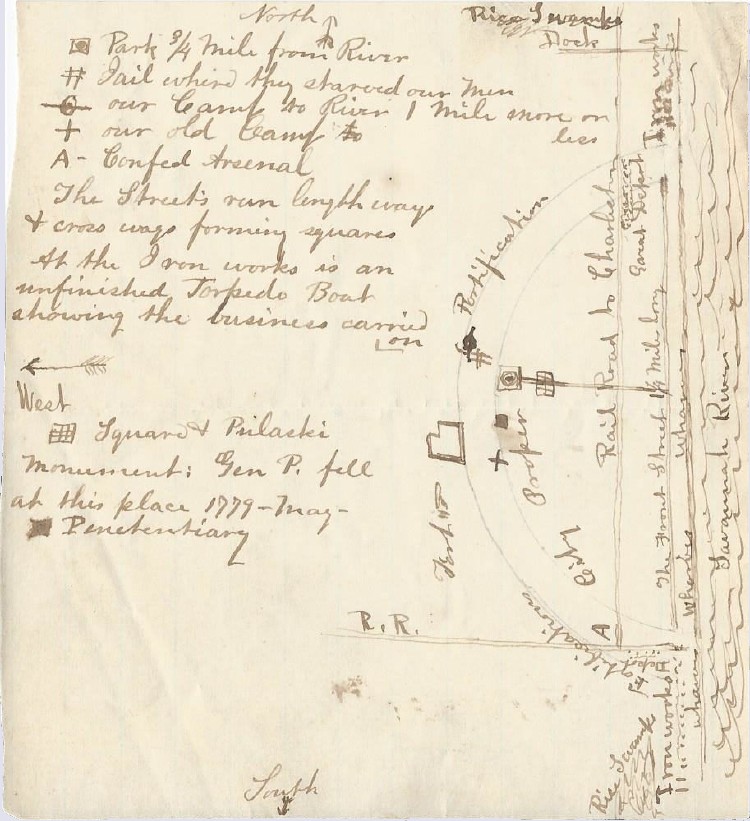 North
Rice Swamps
Dock
Park 3/4 Mile from River
# Jail where they starved our Men
our Camp to River 1 Mile more or
less
+ our old Camp to
A - Confed Arsenal
The Street's run length ways
& cross ways forming squares
At the Iron works is an
unfinished Torpedo Boat
showing the business carried
on
West
Square & Pulaski
Monument: Gen P. fell
at this place 1779 - May -
Penetentiary
Fortification
#
+
Proper
City
Fort
Rail Road to Charleston
Depot
Iron works
The Front Street 1 1/4 Mile long
Wharves
Wharves
Savannah River
R.R.
A
Fortifications
Depot
Iron works
Rice Swamp
South